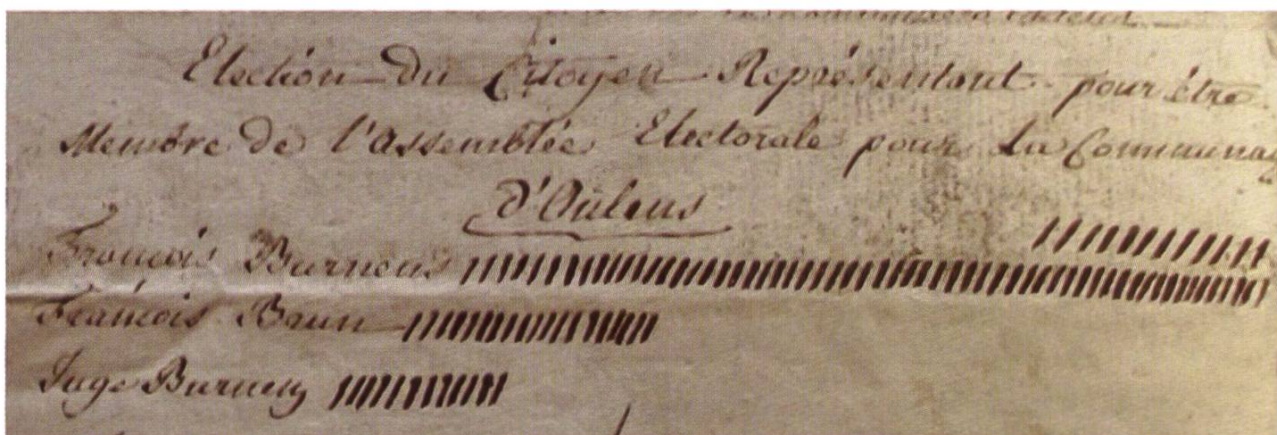 Election du Citoyen Représentant pour être
Membre de l'Assemblée Electorale pour la
d'Oulens
François Burnens
François Brun
Juge Burnens